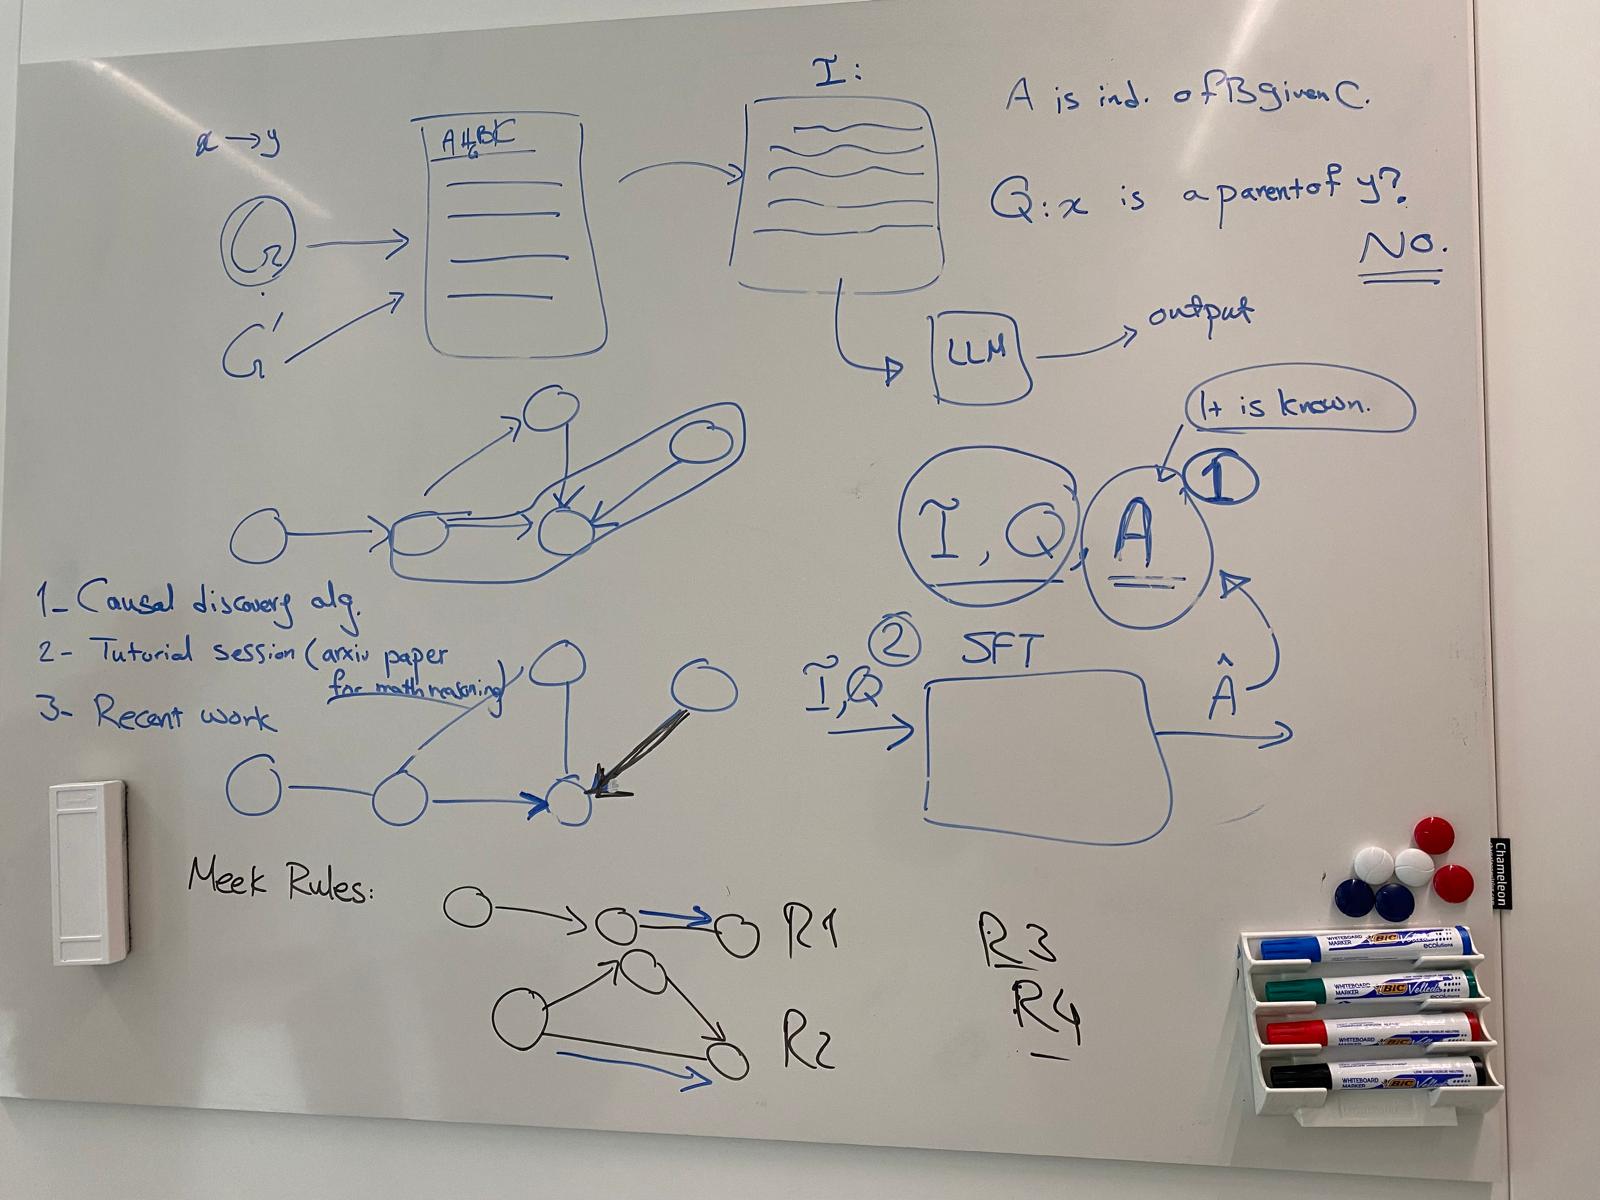 I:
A is ind. of B given C.
x → y
Q: x is a parent of y?
No.
G
G'
LLM
output
It is known.
I, Q, A
1
1- Causal discovery alg.
2- Tuturial session (arxiv paper
for math reasoning)
3- Recent work
2
SFT
I, Q
Â
Meek Rules:
R1
R2
R3
R4
Chameleon
WHITEBOARD MARKER BIC Velleda ecolutions
WHITEBOARD MARKER BIC Velleda
WHITEBOARD MARKER BIC Velleda
WHITEBOARD MARKER BIC Velleda